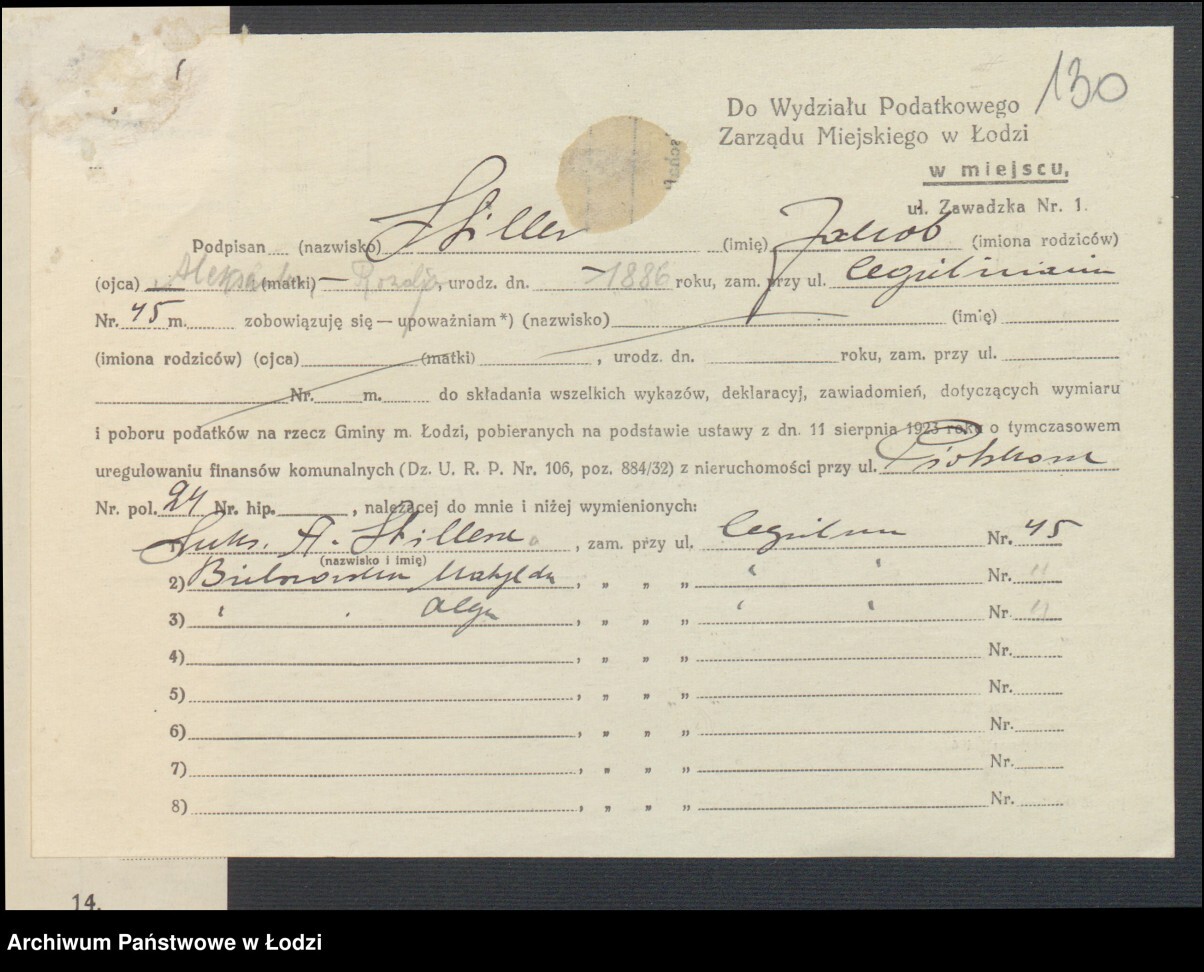 130
Do Wydziału Podatkowego
Zarządu Miejskiego w Łodzi
w miejscu,
ul. Zawadzka Nr. 1.
Podpisan (nazwisko) Stiller (imię) Jakob (imiona rodziców)
(ojca) (matki) — urodz. dn. — 1886 roku, zam. przy ul.
Nr. 45 m. zobowiązuję się — upoważniam *) (nazwisko) (imię)
(imiona rodziców) (ojca) (matki) , urodz. dn. roku, zam. przy ul.
Nr. m. do składania wszelkich wykazów, deklaracyj, zawiadomień, dotyczących wymiaru
i poboru podatków na rzecz Gminy m. Łodzi, pobieranych na podstawie ustawy z dn. 11 sierpnia 1923 roku o tymczasowem
uregulowaniu finansów komunalnych (Dz. U. R. P. Nr. 106, poz. 884/32) z nieruchomości przy ul.
Nr. pol. 24 Nr. hip. , należącej do mnie i niżej wymienionych:
Suks. A. Stillera , zam. przy ul. Nr. 45
(nazwisko i imię)
2) , „ „ „ " " Nr. "
3) " " , „ „ „ " " Nr. "
4) , „ „ „ Nr.
5) , „ „ „ Nr.
6) , „ „ „ Nr.
7) , „ „ „ Nr.
8) , „ „ „ Nr.
14.
Archiwum Państwowe w Łodzi